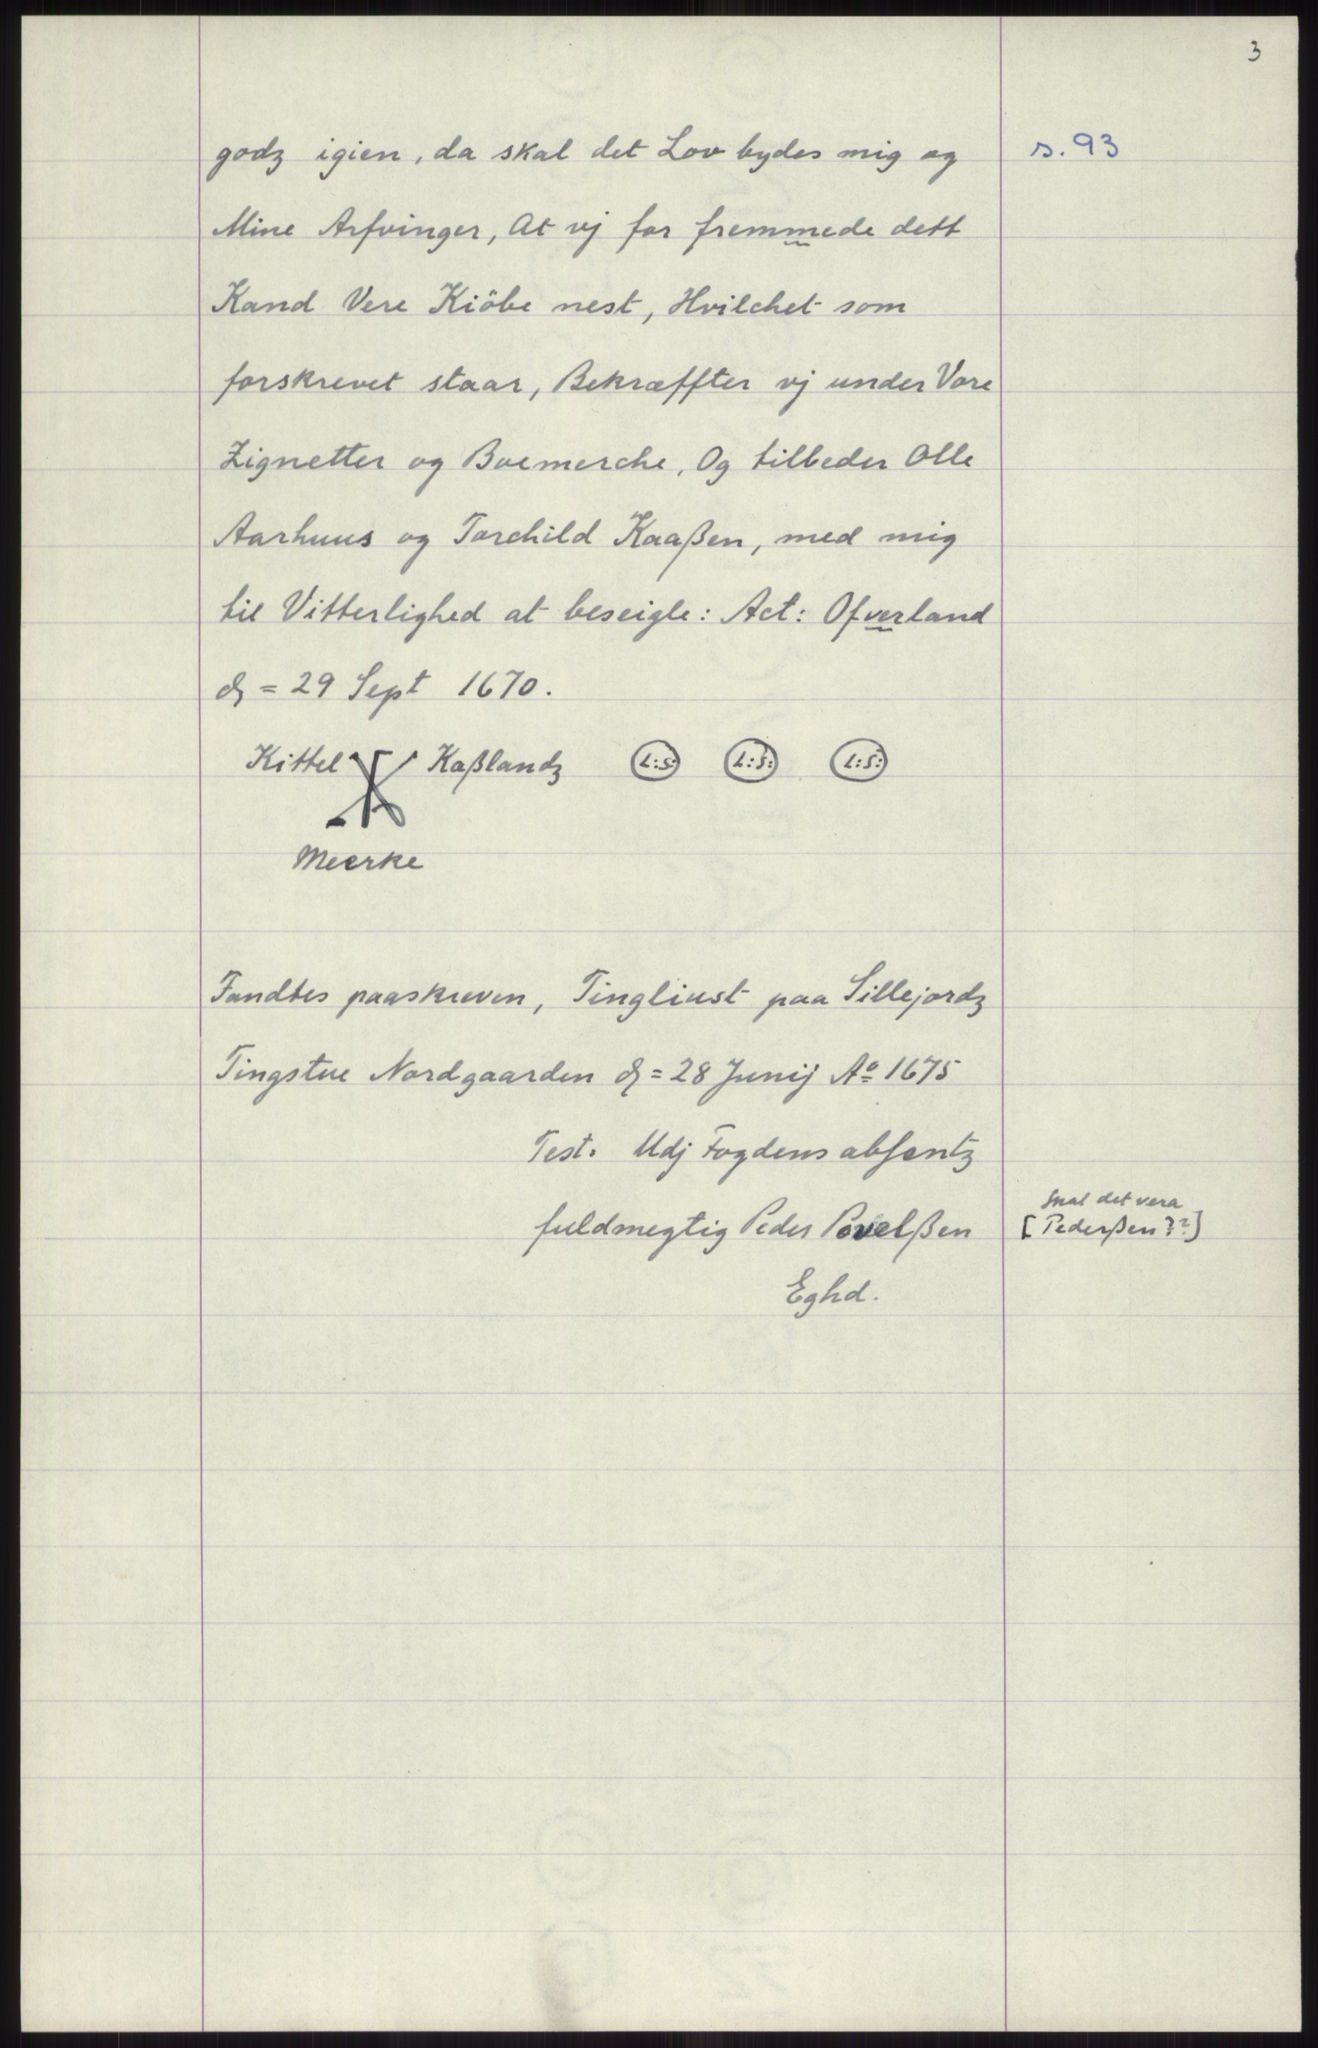 3
godz igien, da skal det Lov bydes mig og
s. 93
Mine Arfvinger, At vj for fremmede dett
Kand Vere Kiöbe nest, Hvilchet som
forskrevet staar, Bekræffter vj under Vore
Zignetter og Boemerche, Og tilbeder Olle
Aarhuus og Torchild Kaaßen, med mig
til Vitterlighed at beseigle: Act: Ofverland
d = 29 Sept 1670.
Kittel Kaßlandz L:S: L:S: L:S:
Meerke
Fandtes paaskreven, Tingliust paa Sillejordz
Tingstue Nordgaarden d = 28 Junij Aº 1675
Test. Udj Fogdens absentz
fuldmegtig Peder Povelßen
Skal det vera
[Pederßen??]
Eghd.